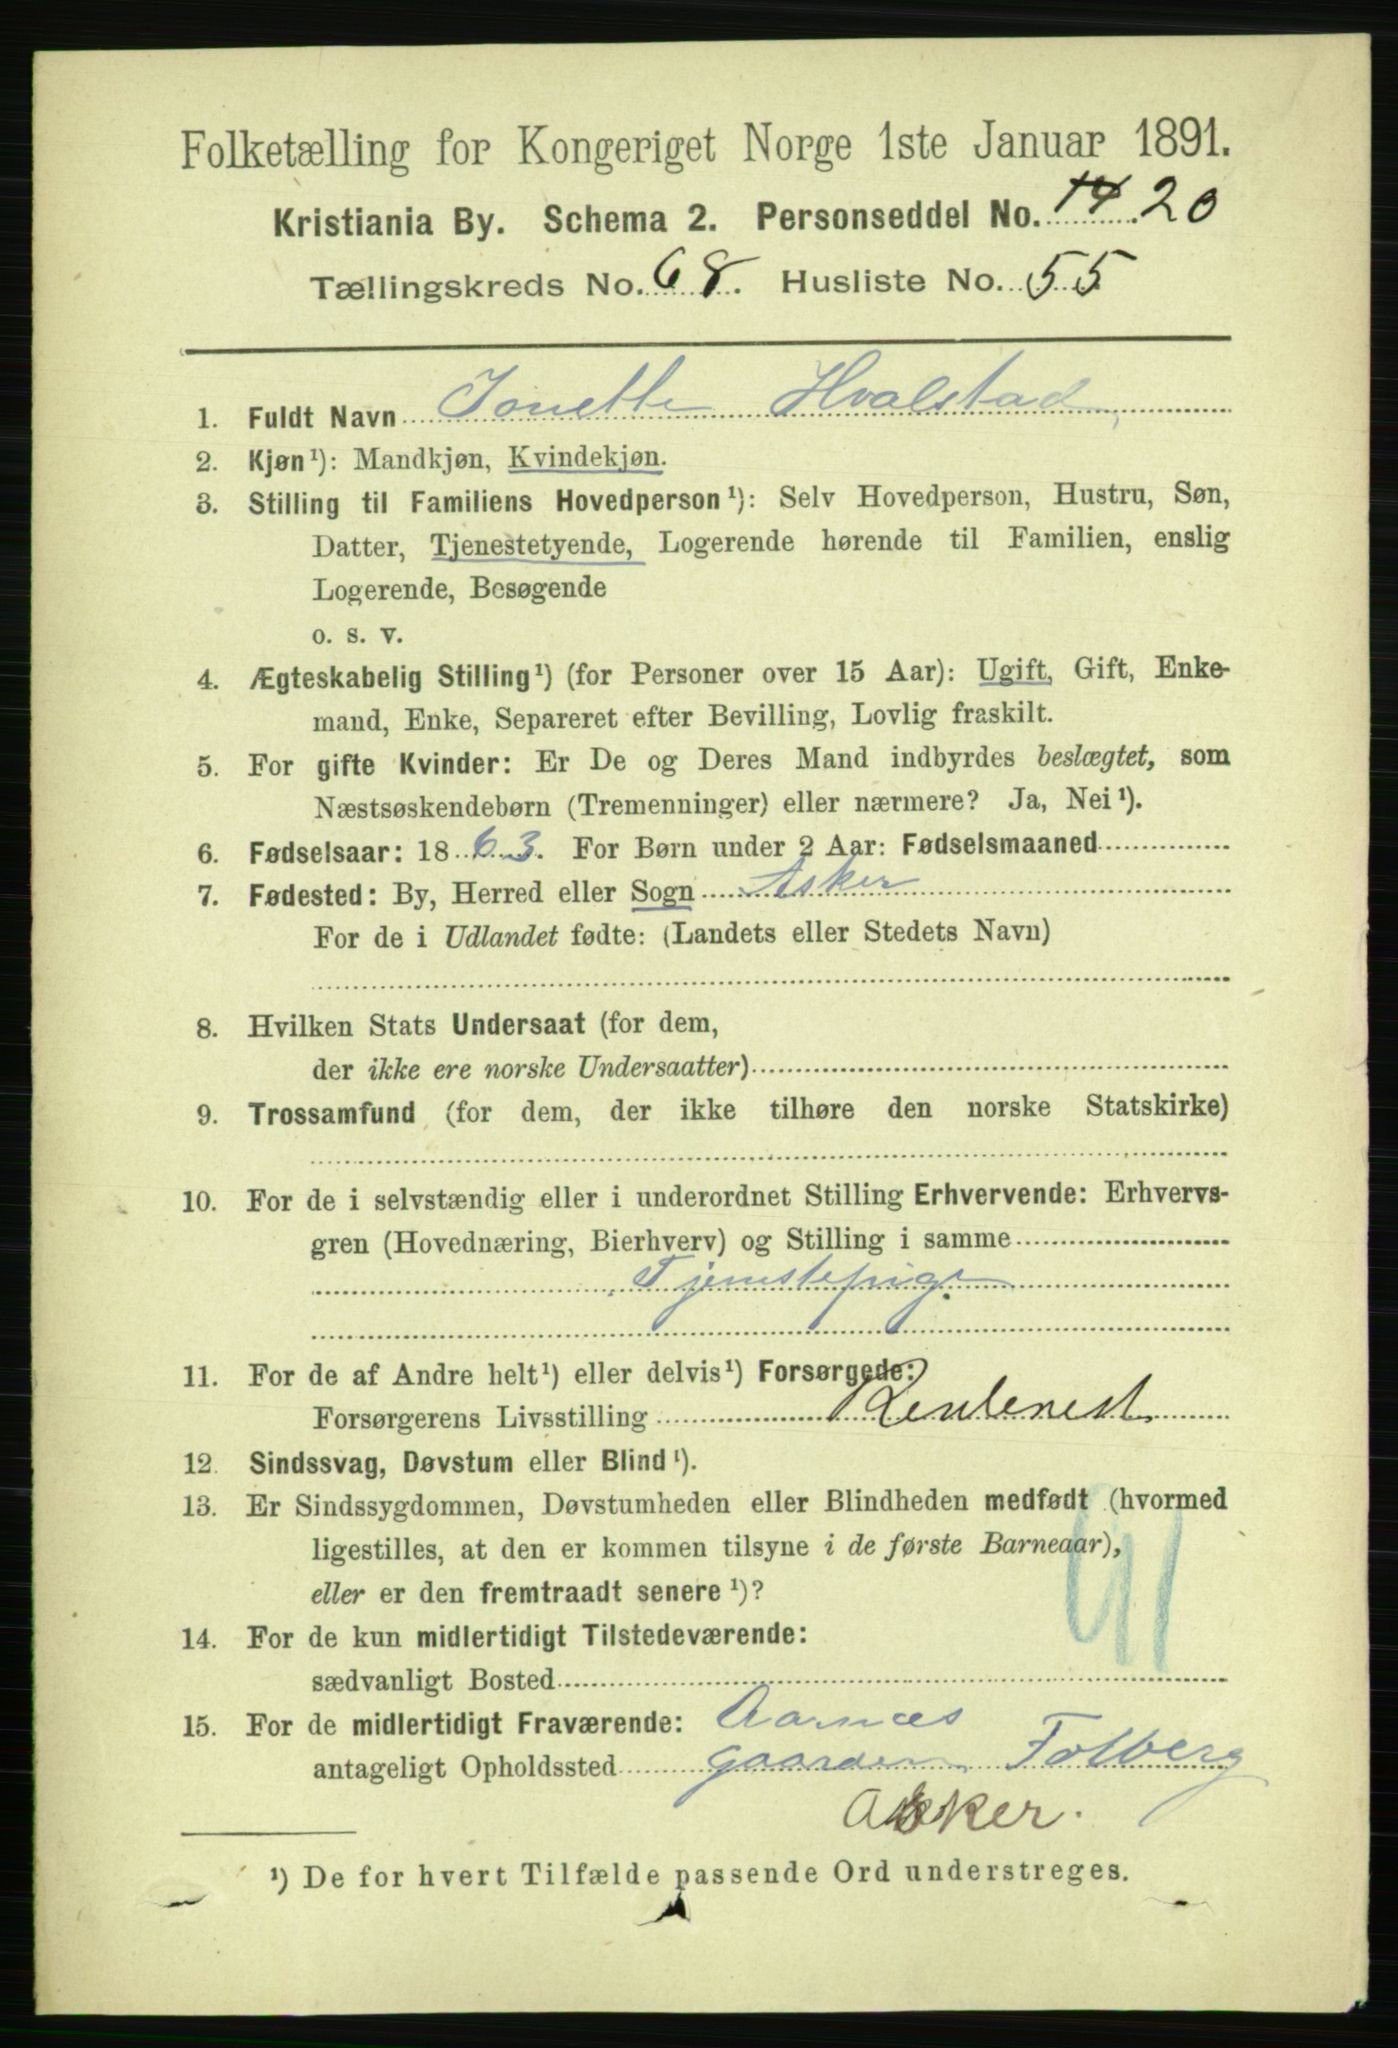 Folketælling for Kongeriget Norge 1ste Januar 1891.
Kristiania By. Schema 2. Personseddel No. 14 20
Tællingskreds No. 68. Husliste No. 55
1. Fuldt Navn Jonette Hvalstad,
2. Kjøn¹): Mandkjøn, Kvindekjøn.
3. Stilling til Familiens Hovedperson¹): Selv Hovedperson, Hustru, Søn,
Datter, Tjenestetyende, Logerende hørende til Familien, enslig
Logerende, Besøgende
o. s. v.
4. Ægteskabelig Stilling¹) (for Personer over 15 Aar): Ugift, Gift, Enke-
mand, Enke, Separeret efter Bevilling, Lovlig fraskilt.
5. For gifte Kvinder: Er De og Deres Mand indbyrdes beslægtet, som
Næstsøskendebørn (Tremenninger) eller nærmere? Ja, Nei¹).
6. Fødselsaar: 1863. For Børn under 2 Aar: Fødselsmaaned
7. Fødested: By, Herred eller Sogn Asker
For de i Udlandet fødte: (Landets eller Stedets Navn)
8. Hvilken Stats Undersaat (for dem,
der ikke ere norske Undersaatter)
9. Trossamfund (for dem, der ikke tilhøre den norske Statskirke)
10. For de i selvstændig eller i underordnet Stilling Erhvervende: Erhvervs-
gren (Hovednæring, Bierhverv) og Stilling i samme
Tjenstepige
11. For de af Andre helt¹) eller delvis¹) Forsørgede:
Forsørgerens Livsstilling Rentenest
12. Sindssvag, Døvstum eller Blind¹).
13. Er Sindssygdommen, Døvstumheden eller Blindheden medfødt (hvormed
ligestilles, at den er kommen tilsyne i de første Barneaar),
eller er den fremtraadt senere¹)?
14. For de kun midlertidigt Tilstedeværende:
sædvanligt Bosted
15. For de midlertidigt Fraværende: Aarnæs
antageligt Opholdssted gaarden Folberg
Asker.
¹) De for hvert Tilfælde passende Ord understreges.